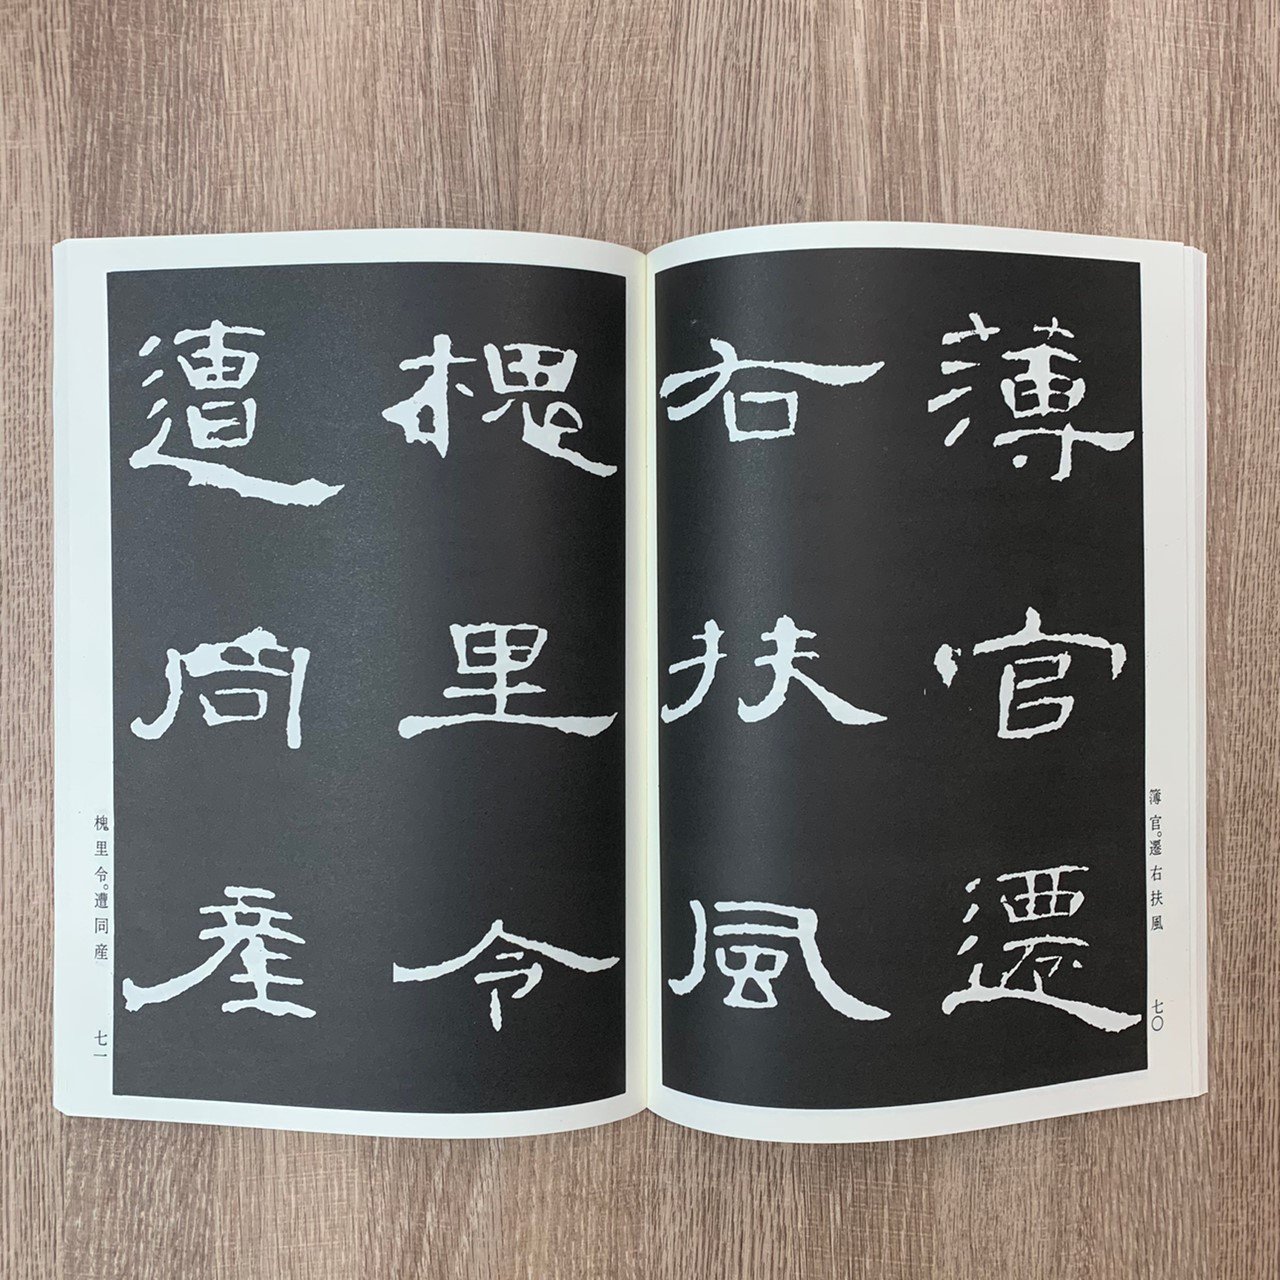 薄官遷
右扶風
簿官。遷右扶風
七〇
槐里令
遭同産
槐里令。遭同産
七一